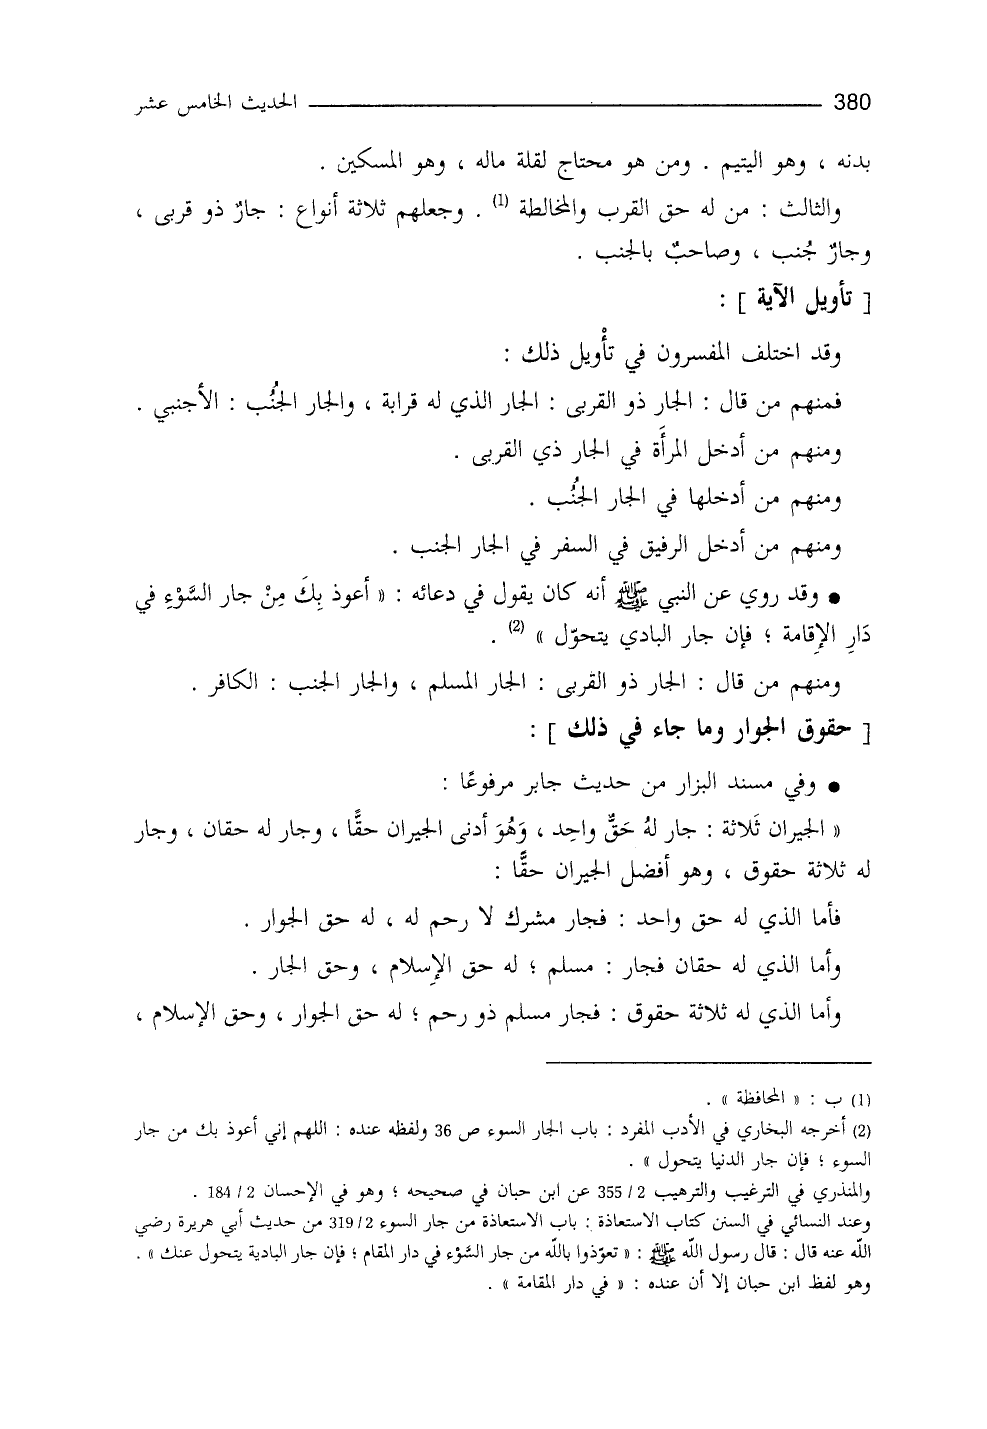 380 الحديث الخامس عشر
بدنه ، وهو اليتيم . ومن هو محتاج لقلة ماله ، وهو المسكين .
والثالث : من له حق القرب والمخالطة (1) . وجعلهم ثلاثة أنواع : جارٌ ذو قربى ،
وجارٌ جُنب ، وصاحبٌ بالجنب .
[ تأويل الآية ] :
وقد اختلف المفسرون في تأْويل ذلك :
فمنهم من قال : الجار ذو القربى : الجار الذي له قرابة ، والجار الجُنُب : الأجنبي .
ومنهم من أدخل المرأَة في الجار ذي القربى .
ومنهم من أدخلها في الجار الجُنُب .
ومنهم من أدخل الرفيق في السفر في الجار الجنب .
● وقد روي عن النبي ﷺ أنه كان يقول في دعائه : « أعوذ بِكَ مِنْ جار السَّوْءِ في
دَارِ الإِقامة ؛ فإن جار البادي يتحوّل » (2) .
ومنهم من قال : الجار ذو القربى : الجار المسلم ، والجار الجنب : الكافر .
[ حقوق الجوار وما جاء في ذلك ] :
● وفي مسند البزار من حديث جابر مرفوعًا :
« الجيران ثَلاثة : جار لهُ حَقٌّ واحِد ، وَهُوَ أدنى الجيران حقًّا ، وجار له حقان ، وجار
له ثلاثة حقوق ، وهو أفضل الجيران حقًّا :
فأما الذي له حق واحد : فجار مشرك لا رحم له ، له حق الجوار .
وأما الذي له حقان فجار : مسلم ؛ له حق الإِسلام ، وحق الجار .
وأما الذي له ثلاثة حقوق : فجار مسلم ذو رحم ؛ له حق الجوار ، وحق الإسلام ،
(1) ب : « المحافظة » .
(2) أخرجه البخاري في الأدب المفرد : باب الجار السوء ص 36 ولفظه عنده : اللهم إني أعوذ بك من جار
السوء ؛ فإن جار الدنيا يتحول » .
والمنذري في الترغيب والترهيب 2 / 355 عن ابن حبان في صحيحه ؛ وهو في الإحسان 2 / 184 .
وعند النسائي في السنن كتاب الاستعاذة : باب الاستعاذة من جار السوء 2 / 319 من حديث أبي هريرة رضي
اللّه عنه قال : قال رسول اللّه ﷺ : « تعوّذوا باللّه من جار السَّوْء في دار المقام ؛ فإن جار البادية يتحول عنك » .
وهو لفظ ابن حبان إلا أن عنده : « في دار المقامة » .